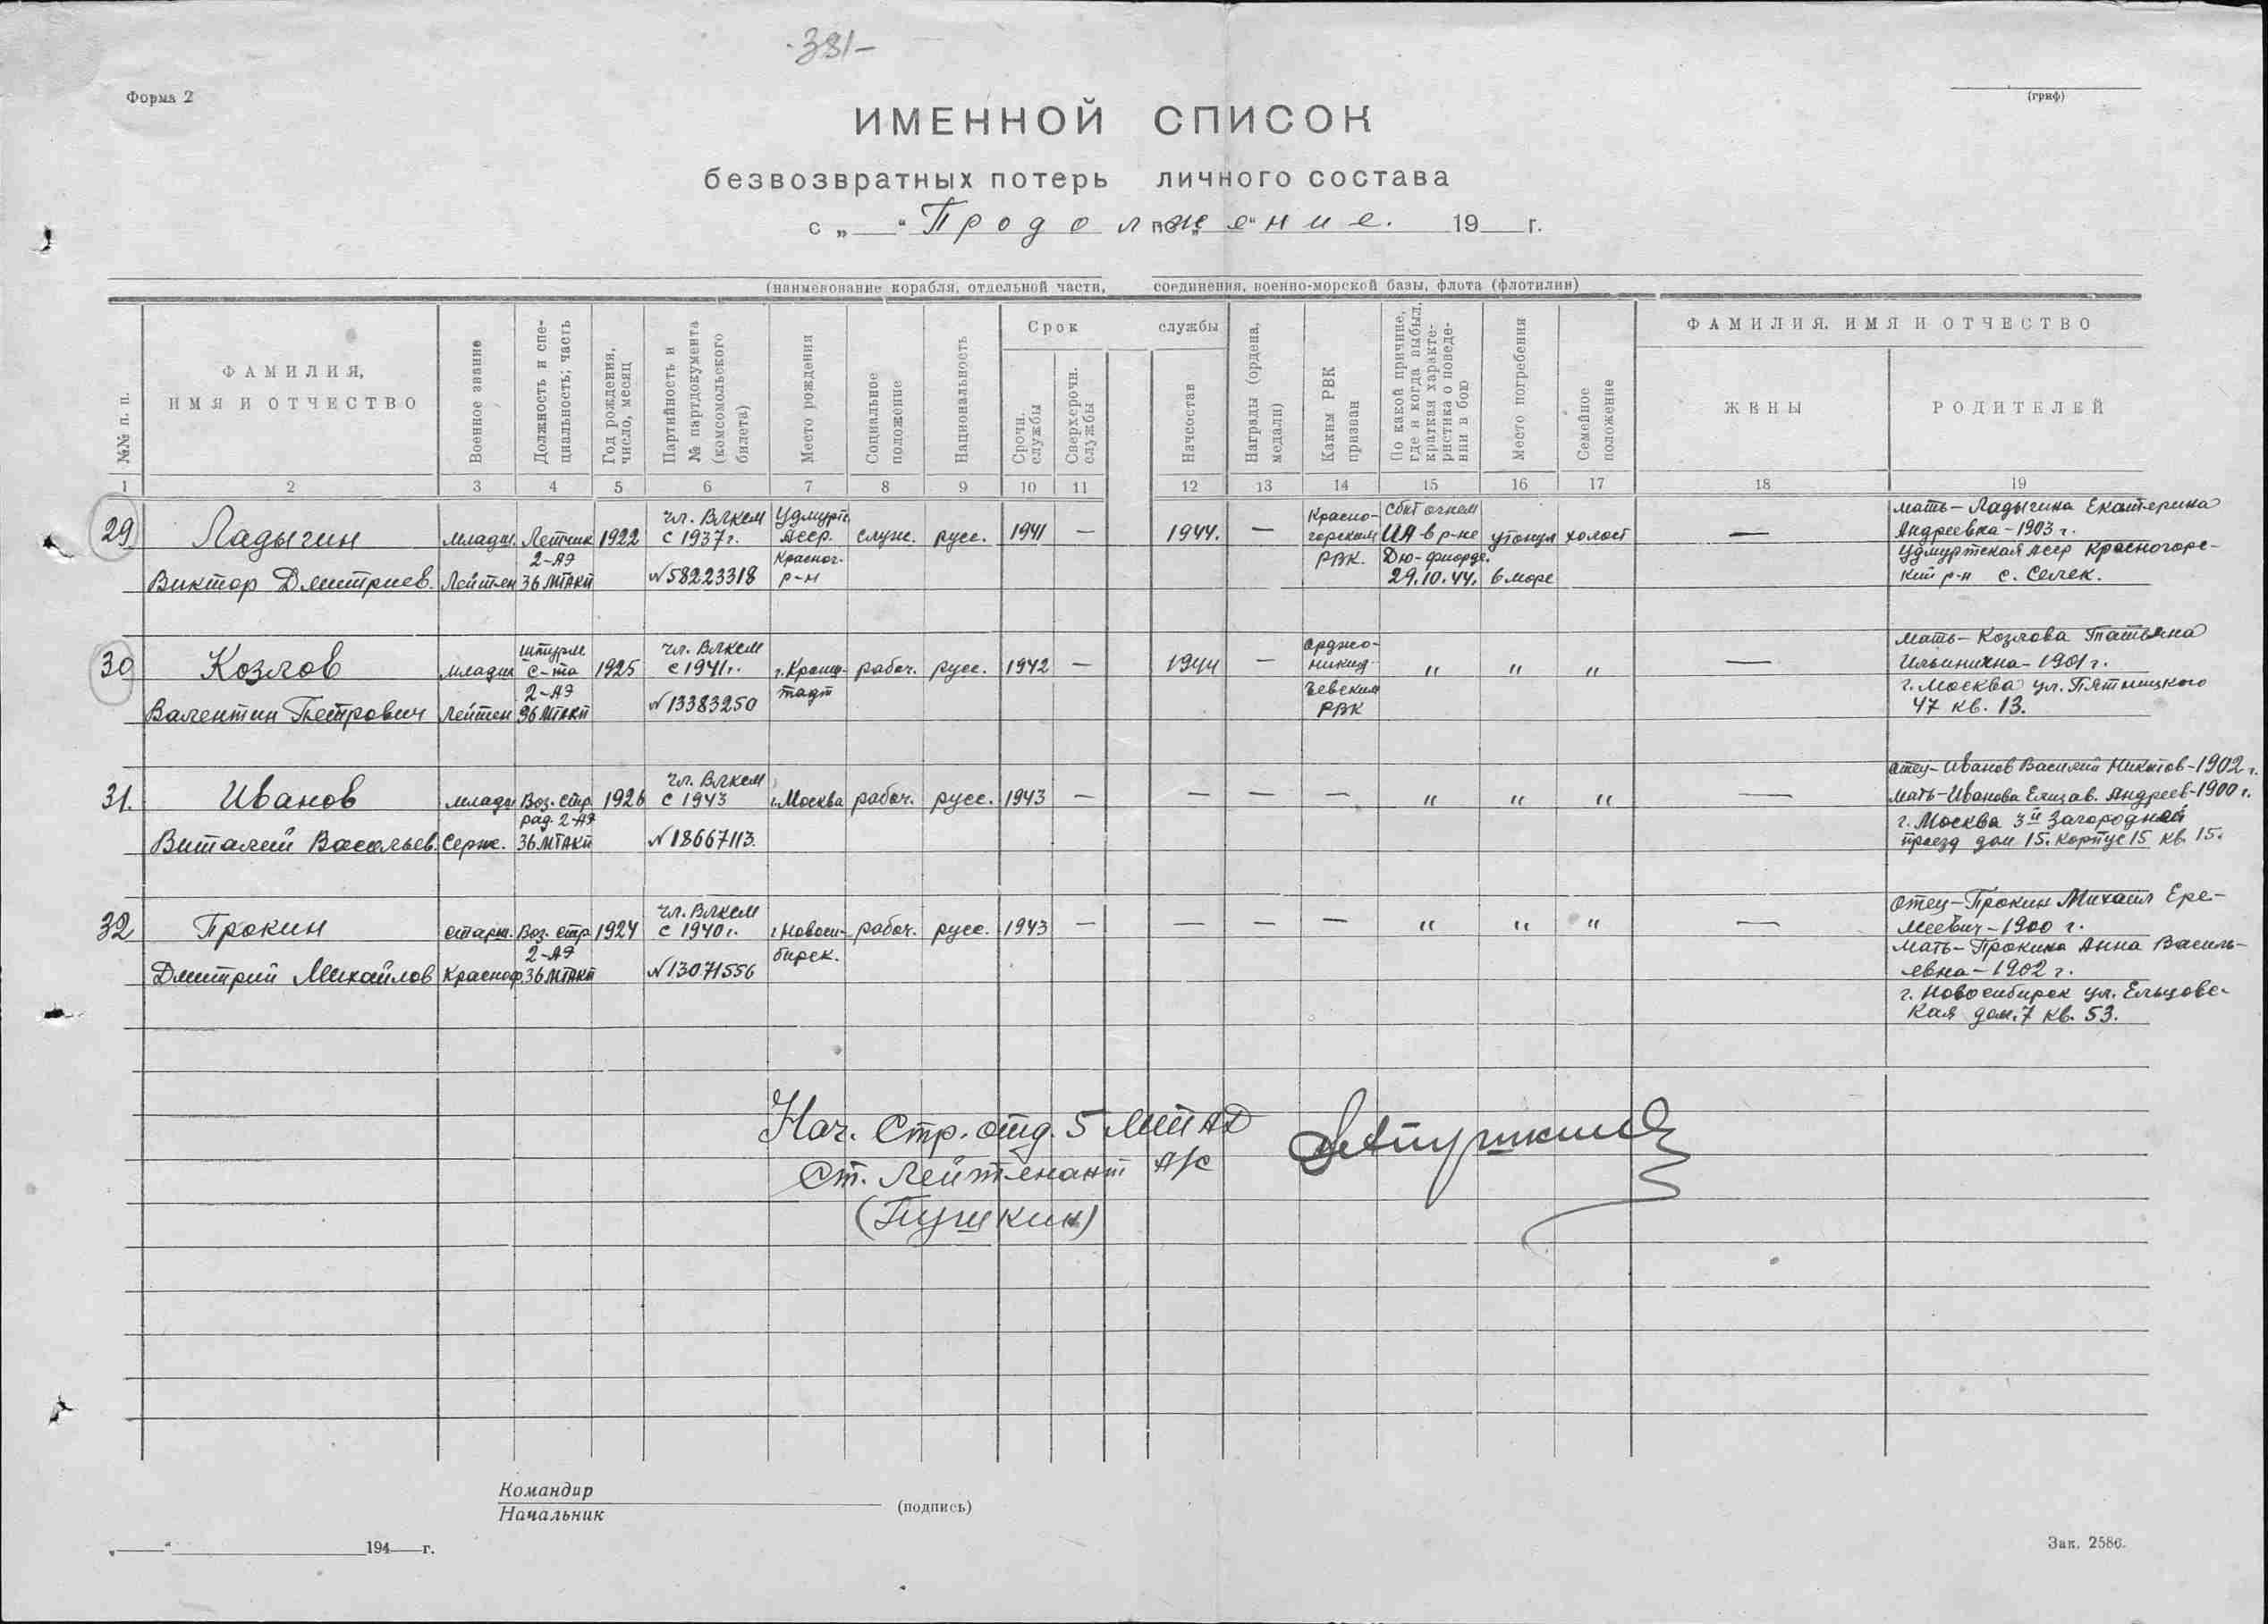 -381-
Форма 2
(гриф)
ИМЕННОЙ СПИСОК
безвозвратных потерь личного состава
с „ “ Продолжение. 19 г.
(наименование корабля, отдельной части, соединения, военно-морской базы, флота (флотилии)
№№ п. п.
ФАМИЛИЯ,
ИМЯ И ОТЧЕСТВО
Военное звание
Должность и спе-
циальность; часть
Год рождения,
число, месяц
Партийность и
№ партдокумента
(комсомольского
билета)
Место рождения
Социальное
положение
Национальность
Срок службы
Срочн.
службы
Сверхсрочн.
службы
Начсостав
Награды (ордена,
медали)
Каким РВК
призван
По какой причине,
где и когда выбыл,
краткая характе-
ристика о поведе-
нии в бою
Место погребения
Семейное
положение
ФАМИЛИЯ, ИМЯ И ОТЧЕСТВО
ЖЕНЫ
РОДИТЕЛЕЙ
1 2 3 4 5 6 7 8 9 10 11 12 13 14 15 16 17 18 19
29
Ладыгин
Виктор Дмитриев.
младш.
Лейтен
Летчик
2-АЭ
36 МТАКП
1922
чл. Влксм
с 1937 г.
№ 58223318
Удмурт.
Асср.
Красног.
р-н
служ.
русс.
1941
—
1944.
—
Красно-
горским
РВК.
Сбит огнем
ИА в р-не
Дю-фиорде.
29.10.44.
утонул
в море
холост
—
мать - Ладыгина Екатерина
Андреевна - 1903 г.
Удмуртская Асср Красногорс-
кий р-н с. Селек.
30
Козлов
Валентин Петрович
младш
Лейтен
штурм
с-та
2-АЭ
36 МТАКП
1925
чл. Влксм
с 1941 г.
№ 13383250
г. Кронш-
тадт
рабоч.
русс.
1942
—
1944
—
Орджо-
никид-
зевским
РВК
"
"
"
—
мать - Козлова Татьяна
Ильинична - 1901 г.
г. Москва ул. Пятницкого
47 кв. 13.
31.
Иванов
Виталий Васильев.
младш
Серж.
Воз. стр.
рад. 2-АЭ
36 МТАКП
1926
чл. Влксм
с 1943
№ 18667113.
г. Москва
рабоч.
русс.
1943
—
—
—
—
"
"
"
—
отец - Иванов Василий Никитов - 1902 г.
мать - Иванова Елизав. Андреев - 1900 г.
г. Москва 3й Загородный
проезд дом 15. Корпус 15 кв. 15.
32
Прокин
Дмитрий Михайлов
старш.
Красноф.
Воз. стр
2-АЭ
36 МТАКП
1924
чл. Влксм
с 1940 г.
№ 13071556
г. Новоси-
бирск.
рабоч.
русс.
1943
—
—
—
—
"
"
"
—
отец - Прокин Михаил Ере-
меевич - 1900 г.
мать - Прокина Анна Василь-
евна - 1902 г.
г. Новосибирск ул. Ельцовс-
кая дом. 7 кв. 53.
Нач. Стр. отд. 5 МТАД
Ст. Лейтенант А/С
(Пушкин)
Командир
Начальник
(подпись)
„ “ 194 г.
Зак. 2586.